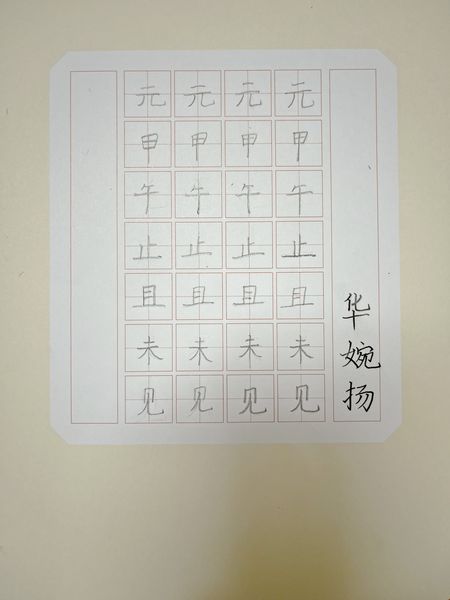 元元元元
甲甲甲甲
午午午午
止止止止
且且且且
未未未未
见见见见
华婉扬